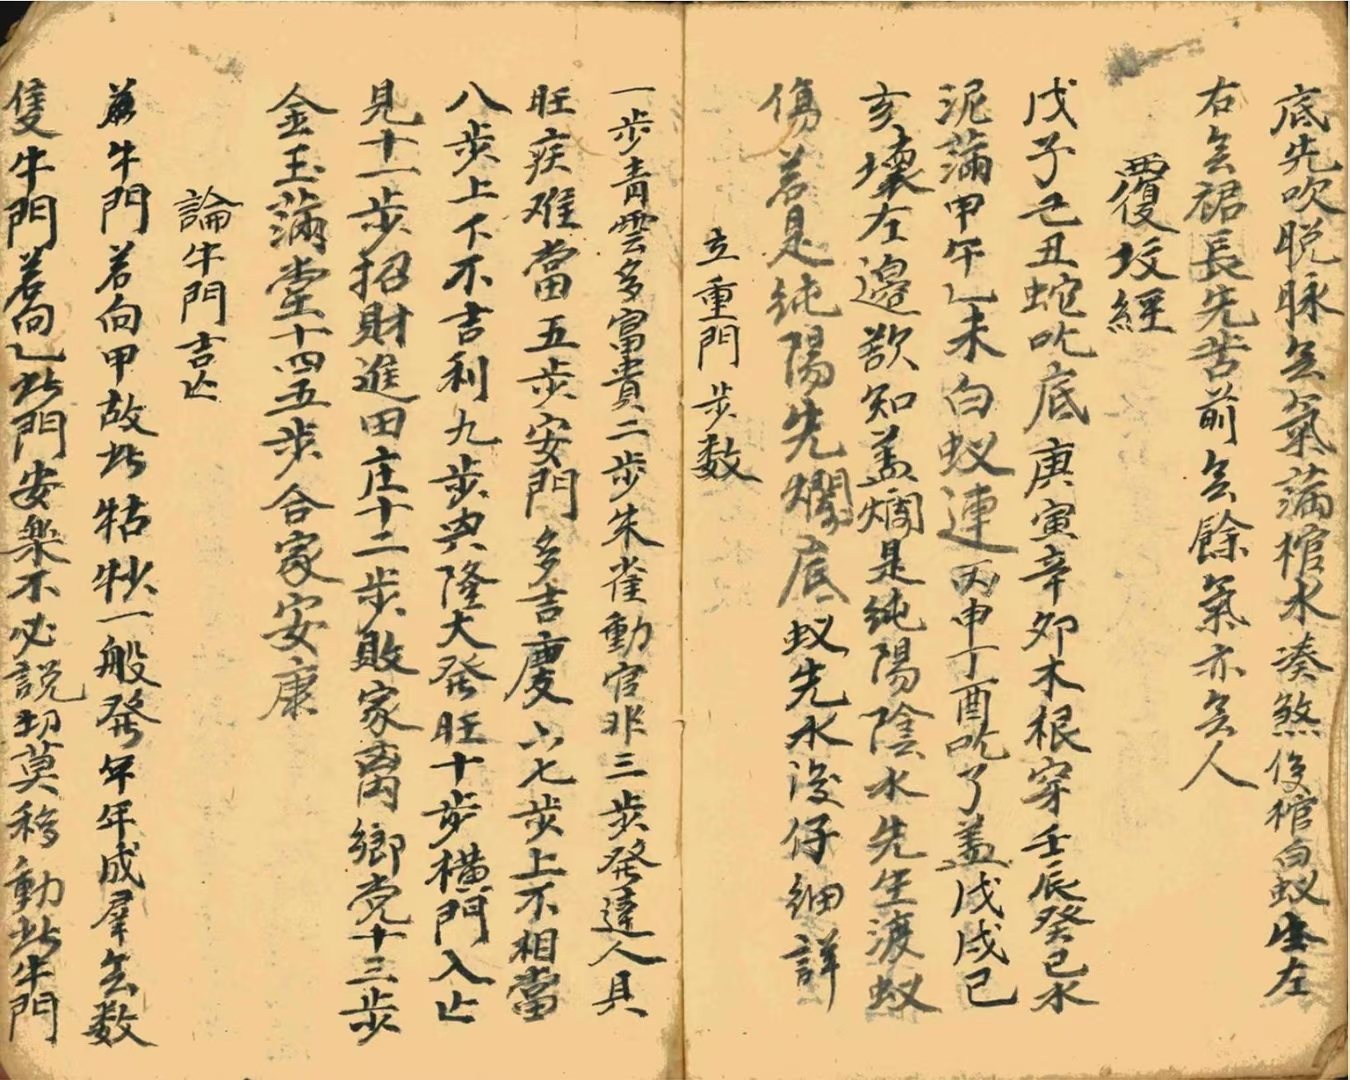 底先吹脱脉无氣蒲棺水湊煞後棺白蚁生左
右无裙長先苦前无餘氣亦无人
覆坟經
戊子己丑蛇吃底庚寅辛夘木根穿壬辰癸己水
泥蒲甲午乙未白蚁連丙申丁酉吃了盖戊戌己
亥壞左邉欲知盖爛是純陽陰水先生渡蚁
傷若是純陽先爛底蚁先水後仔細詳
立重門步数
一步青雲多富貴二步朱雀動官非三步發達人具
旺疾难當五步安門多吉慶六七步上不相當
八步上下不吉利九步興隆大發旺十步横門入亡
見十一步招財進田庄十二步敗家离鄉党十三步
金玉蒲堂十四五步合家安康
論牛門吉亡
牛門若向甲故此牯牝一般發年年成羣无数
隻牛門若向乙此門安樂不必説切莫移動此牛門